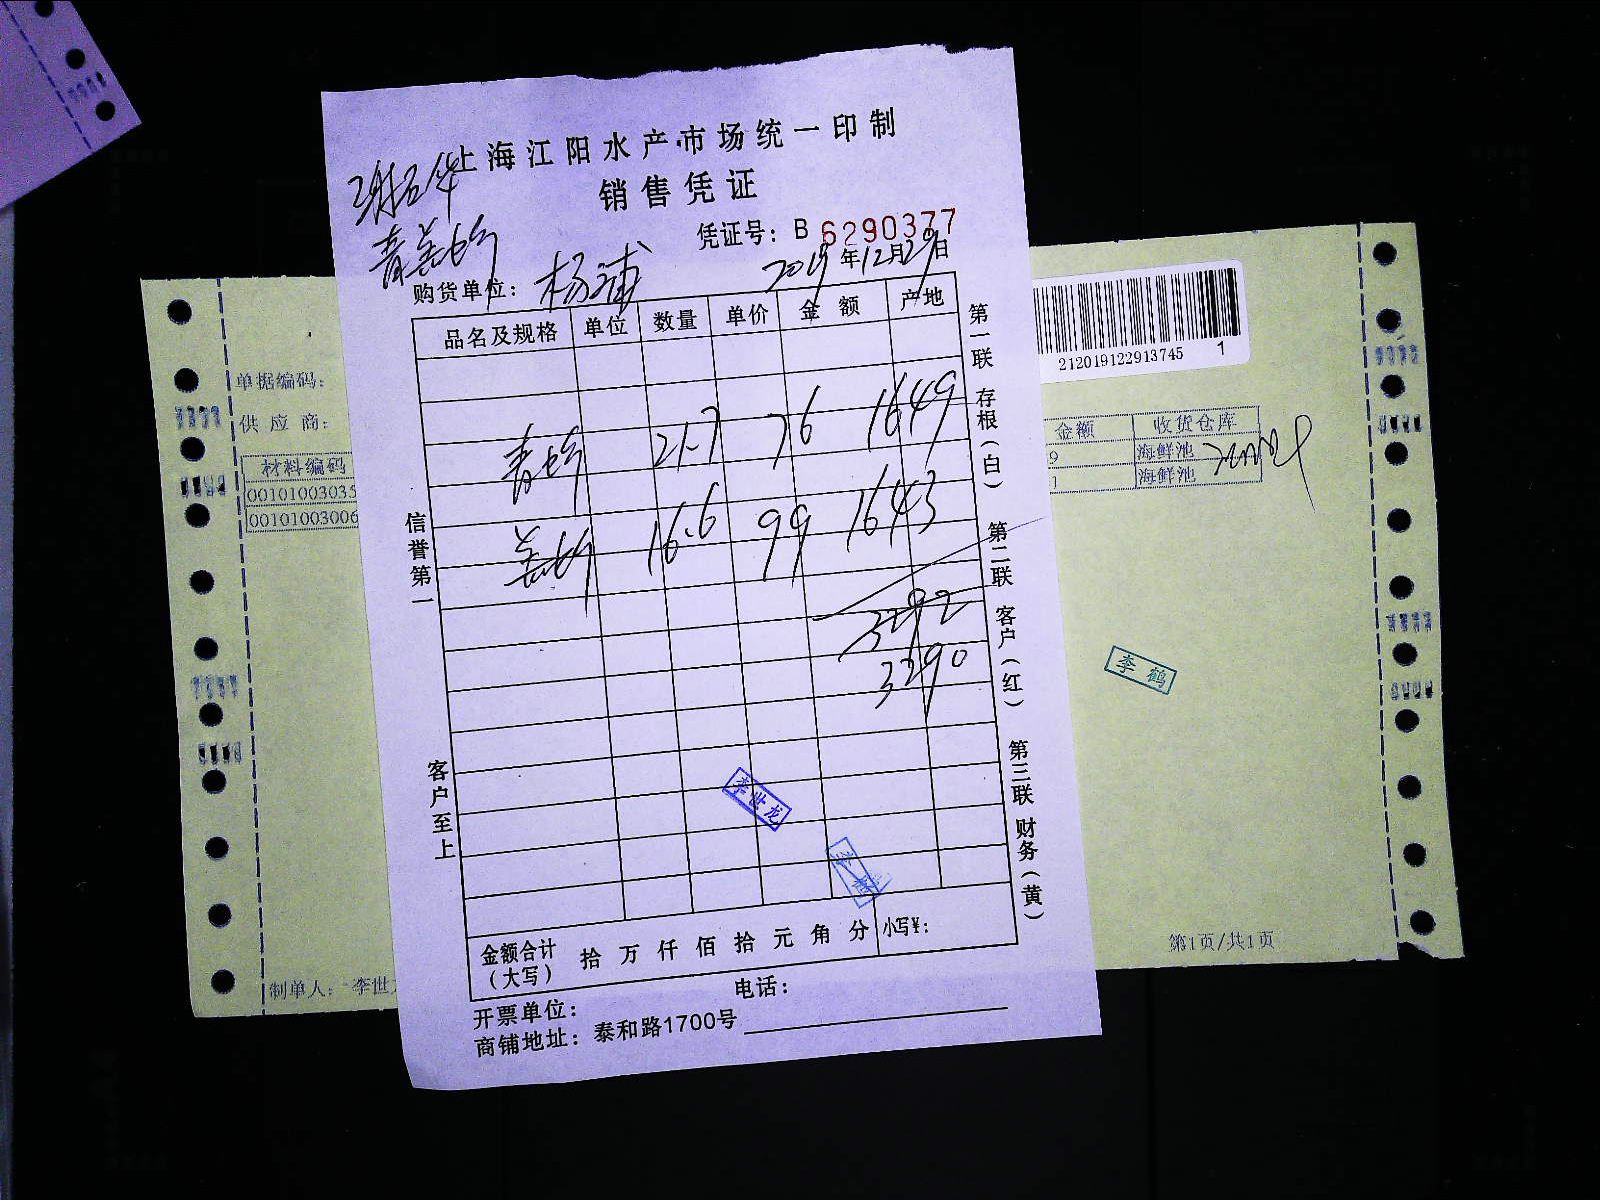 上海江阳水产市场统一印制
销售凭证
凭证号: B 6290377
2019年12月29日
购货单位: 杨浦
品名及规格 单位 数量 单价 金 额 产地
青 21.7 76 1649
16.6 99 1643
3292
3290
李世龙
李鹤
金额合计(大写) 拾 万 仟 佰 拾 元 角 分 小写¥:
开票单位: 电话:
商铺地址: 泰和路1700号
信誉第一
客户至上
第一联 存根(白) 第二联 客户(红) 第三联 财务(黄)
单据编码:
供 应 商:
材料编码
00101003035
00101003006
制单人: 李世
212019122913745 1
金额 收货仓库
9 海鲜池
1 海鲜池
李鹤
第1页/共1页